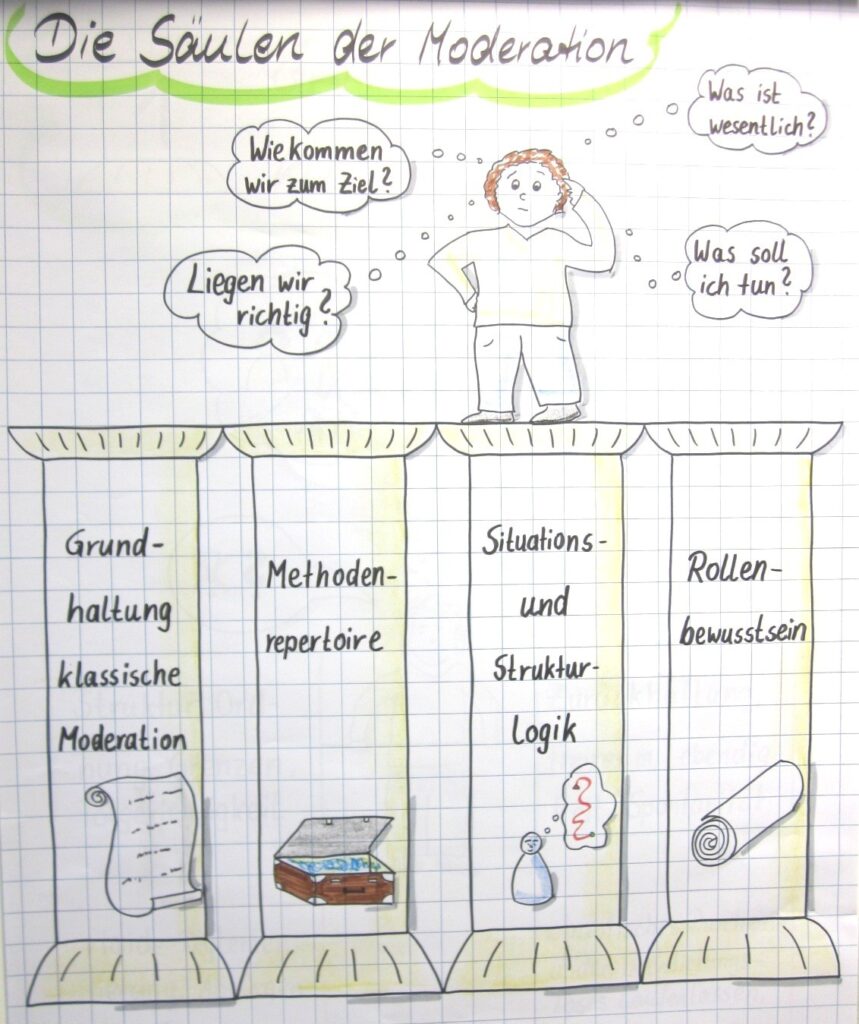 Die Säulen der Moderation
Was ist
wesentlich?
Wie kommen
wir zum Ziel?
Was soll
ich tun?
Liegen wir
richtig?
Grund-
haltung
klassische
Moderation
Methoden-
repertoire
Situations-
und
Struktur-
Logik
Rollen-
bewusstsein